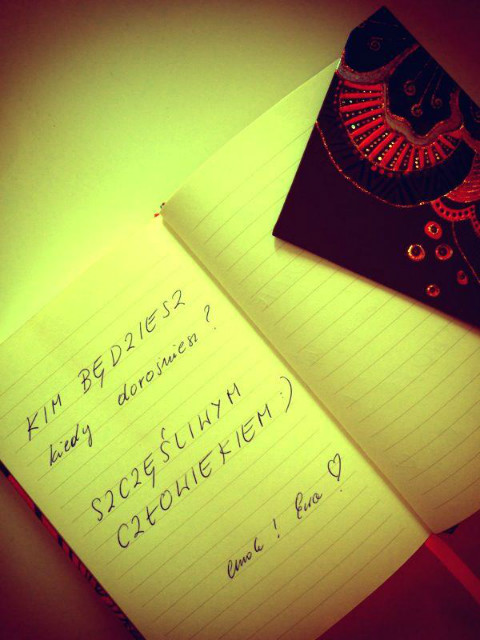 KIM BĘDZIESZ
kiedy dorośniesz?
SZCZĘŚLIWYM
CZŁOWIEKIEM :)
Cmok! Ewa ♡